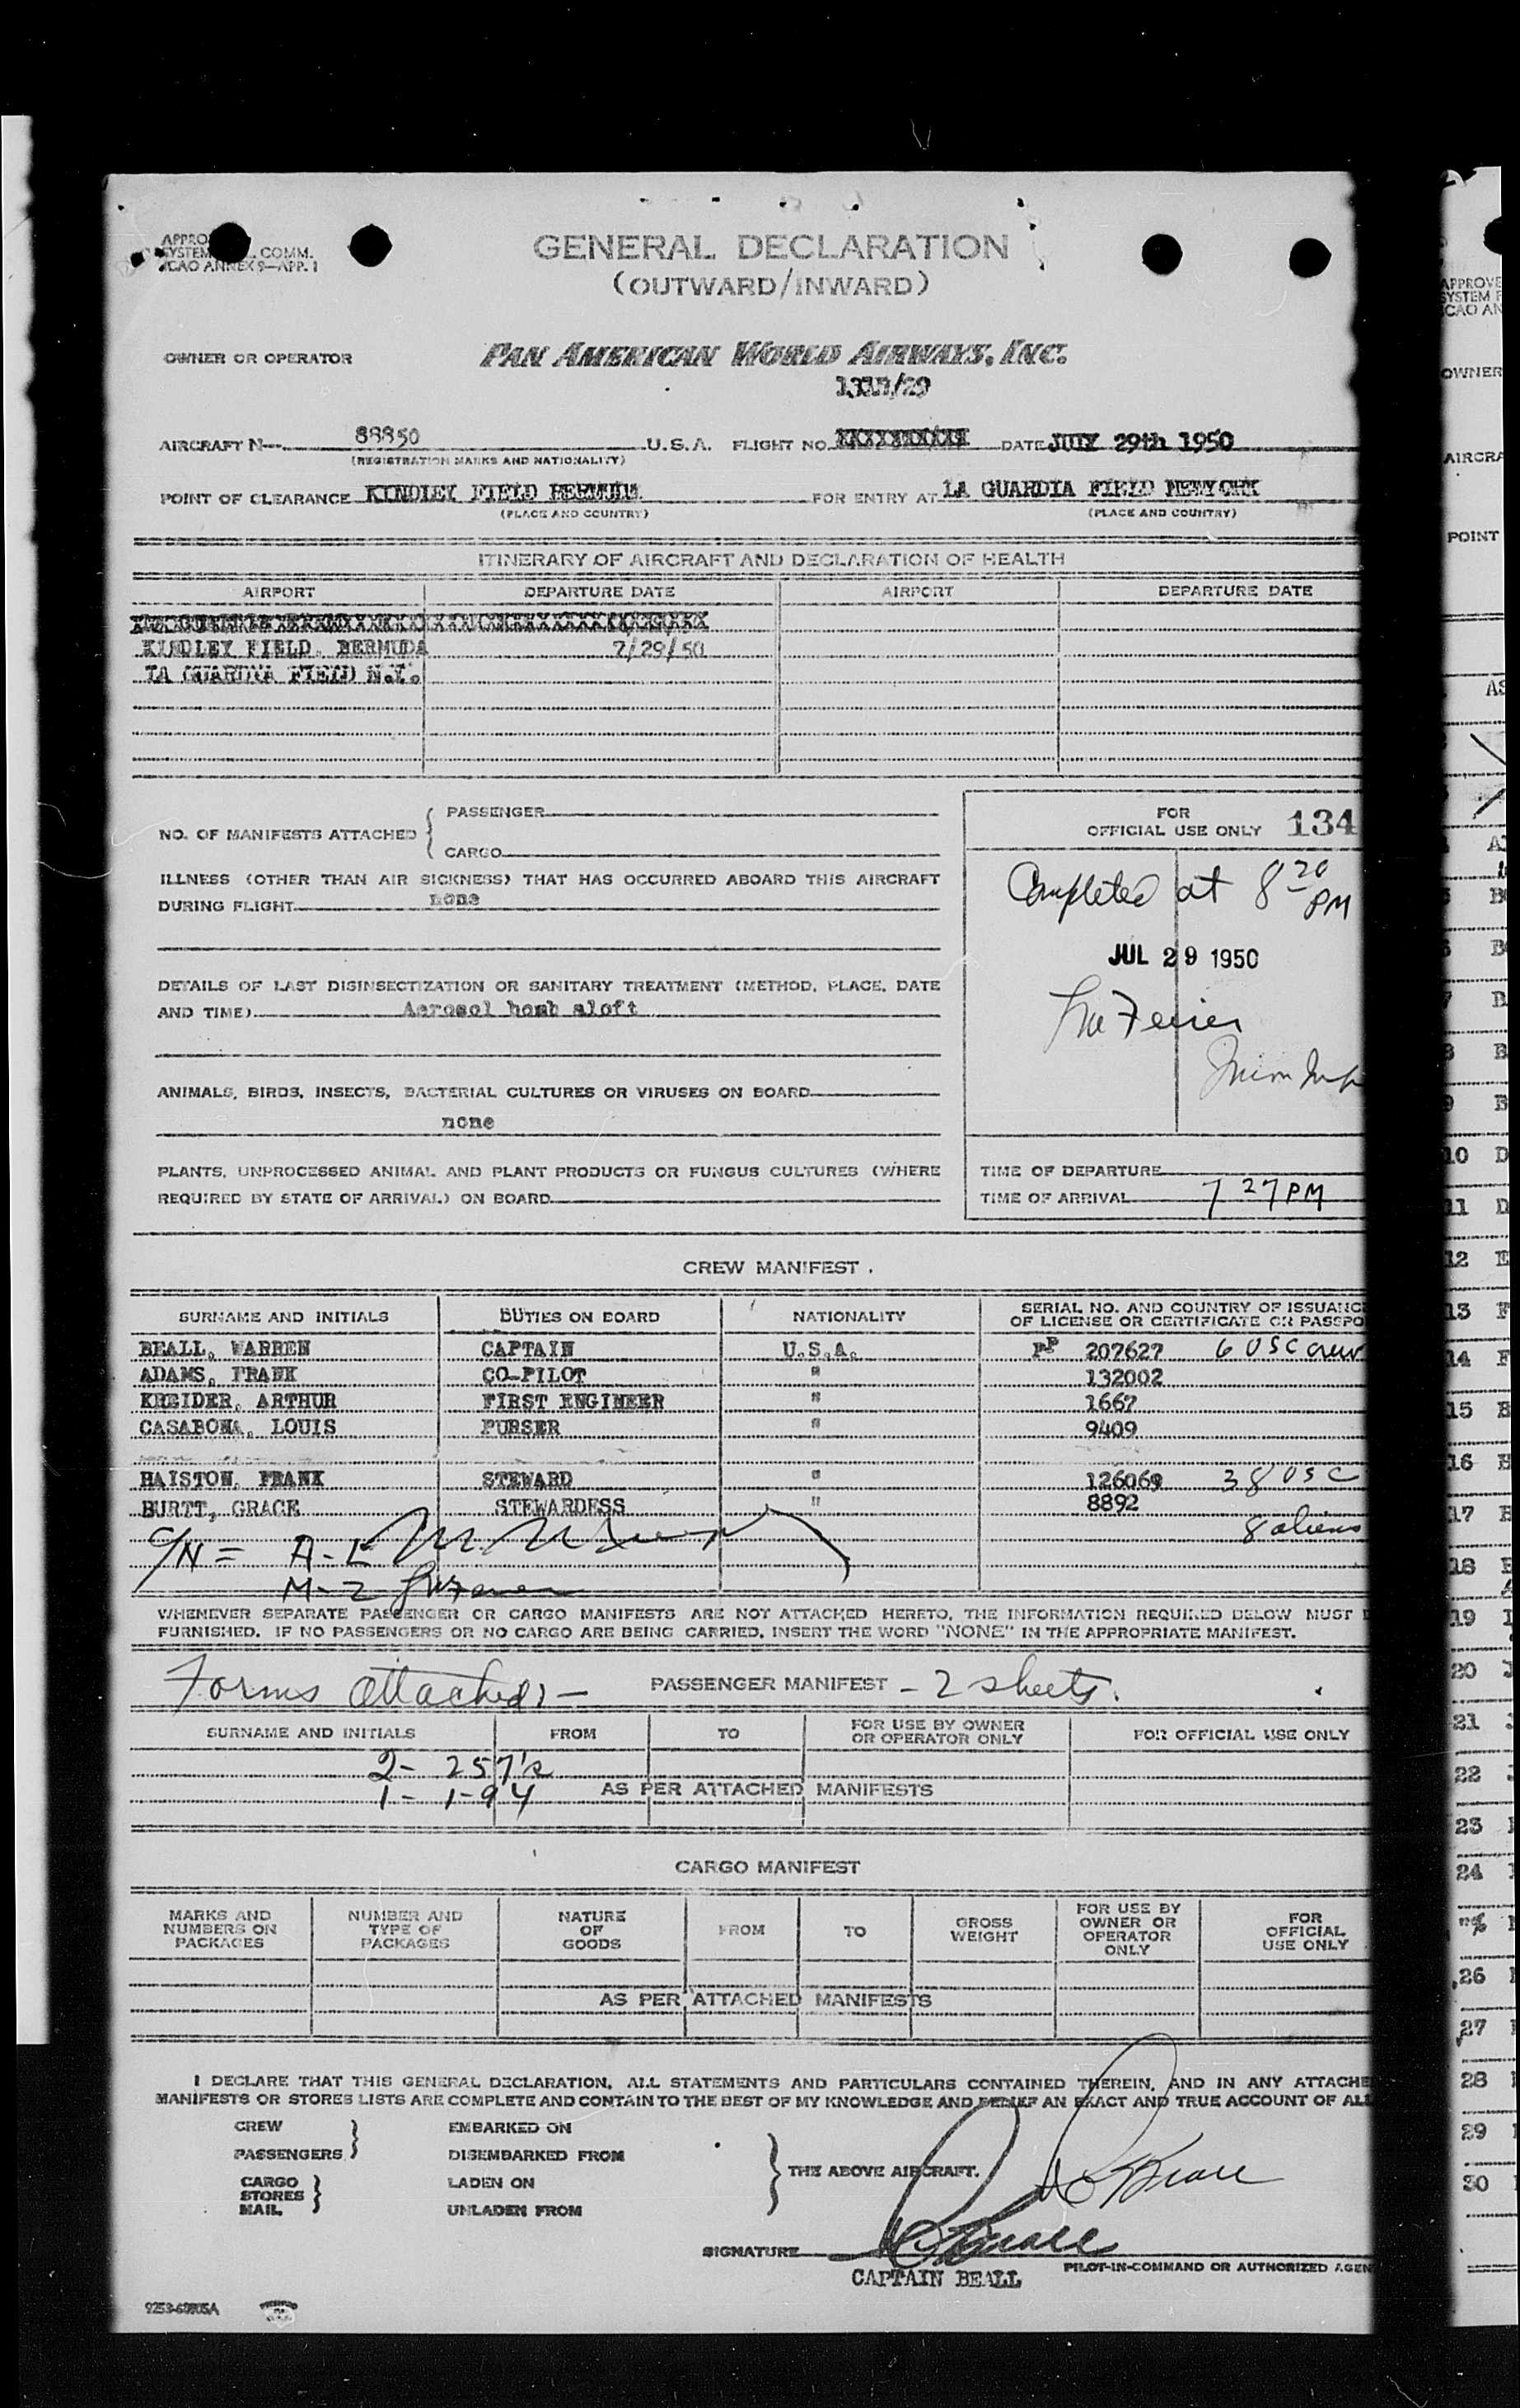 GENERAL DECLARATION
(OUTWARD/INWARD)
COMM.
ICAO ANNEX 9—APP. 1
OWNER OR OPERATOR PAN AMERICAN WORLD AIRWAYS, INC.
AIRCRAFT N— 88850 U.S.A. FLIGHT NO. DATE JULY 29th 1950
(REGISTRATION MARKS AND NATIONALITY)
POINT OF CLEARANCE KINDLEY FIELD BERMUDA FOR ENTRY AT LA GUARDIA FIELD NEWYORK
(PLACE AND COUNTRY) (PLACE AND COUNTRY)
ITINERARY OF AIRCRAFT AND DECLARATION OF HEALTH
AIRPORT DEPARTURE DATE AIRPORT DEPARTURE DATE
KINDLEY FIELD, BERMUDA 7/29/50
LA GUARDIA FIELD N.Y.
NO. OF MANIFESTS ATTACHED { PASSENGER
CARGO
FOR
OFFICIAL USE ONLY 134
ILLNESS (OTHER THAN AIR SICKNESS) THAT HAS OCCURRED ABOARD THIS AIRCRAFT
DURING FLIGHT none
Completed at 8 20 PM
JUL 29 1950
DETAILS OF LAST DISINSECTIZATION OR SANITARY TREATMENT (METHOD, PLACE, DATE
AND TIME) Aerosol bomb aloft
ANIMALS, BIRDS, INSECTS, BACTERIAL CULTURES OR VIRUSES ON BOARD
none
PLANTS, UNPROCESSED ANIMAL AND PLANT PRODUCTS OR FUNGUS CULTURES (WHERE
REQUIRED BY STATE OF ARRIVAL) ON BOARD
TIME OF DEPARTURE
TIME OF ARRIVAL 7 27 PM
CREW MANIFEST.
SURNAME AND INITIALS DUTIES ON BOARD NATIONALITY SERIAL NO. AND COUNTRY OF ISSUANC
OF LICENSE OR CERTIFICATE OR PASSPO
BEALL, WARREN CAPTAIN U.S.A. PP 207627 6 USC crew
ADAMS, FRANK CO-PILOT " 132002
KREIDER, ARTHUR FIRST ENGINEER " 1667
CASABONA, LOUIS PURSER " 9409
HAISTON, FRANK STEWARD " 126069 38 USC
BURTT, GRACE STEWARDESS " 8892
8 aliens
C/N =
WHENEVER SEPARATE PASSENGER OR CARGO MANIFESTS ARE NOT ATTACHED HERETO, THE INFORMATION REQUIRED BELOW MUST
FURNISHED. IF NO PASSENGERS OR NO CARGO ARE BEING CARRIED, INSERT THE WORD "NONE" IN THE APPROPRIATE MANIFEST.
Forms attached:- PASSENGER MANIFEST - 2 sheets.
SURNAME AND INITIALS FROM TO FOR USE BY OWNER
OR OPERATOR ONLY FOR OFFICIAL USE ONLY
2- 257's
1- 1-94 AS PER ATTACHED MANIFESTS
CARGO MANIFEST
MARKS AND
NUMBERS ON
PACKAGES
NUMBER AND
TYPE OF
PACKAGES
NATURE
OF
GOODS
FROM
TO
GROSS
WEIGHT
FOR USE BY
OWNER OR
OPERATOR
ONLY
FOR
OFFICIAL
USE ONLY
AS PER ATTACHED MANIFESTS
I DECLARE THAT THIS GENERAL DECLARATION, ALL STATEMENTS AND PARTICULARS CONTAINED THEREIN, AND IN ANY ATTACHE
MANIFESTS OR STORES LISTS ARE COMPLETE AND CONTAIN TO THE BEST OF MY KNOWLEDGE AND BELIEF AN EXACT AND TRUE ACCOUNT OF ALL
CREW EMBARKED ON
PASSENGERS DISEMBARKED FROM
THE ABOVE AIRCRAFT.
CARGO LADEN ON
STORES
MAIL UNLADEN FROM
SIGNATURE
CAPTAIN BEALL
PILOT-IN-COMMAND OR AUTHORIZED AGEN
APPROVE
SYSTEM
OWNER
POINT
10
11
12
13
14
15
16
17
18
19
20
21
22
23
24
26
27
28
29
30